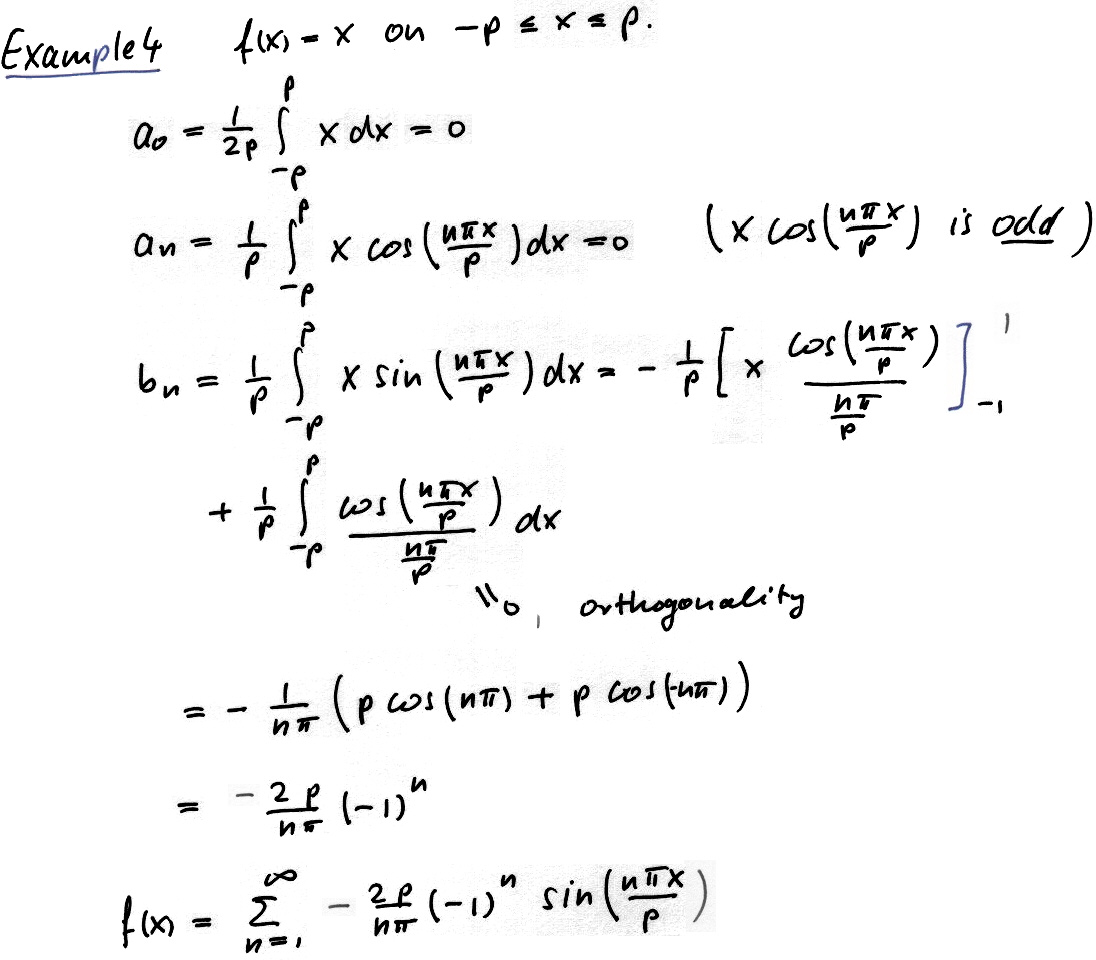 Example 4 f(x) = x on -p ≤ x ≤ p.
a₀ = 1/(2p) ∫_{-p}^{p} x dx = 0
aₙ = 1/p ∫_{-p}^{p} x cos(nπx/p) dx = 0 (x cos(nπx/p) is odd)
bₙ = 1/p ∫_{-p}^{p} x sin(nπx/p) dx = - 1/p [x cos(nπx/p)/(nπ/p)]_{-1}^{1}
+ 1/p ∫_{-p}^{p} cos(nπx/p)/(nπ/p) dx
"0, orthogonality
= - 1/(nπ) (p cos(nπ) + p cos(-nπ))
= - 2p/(nπ) (-1)ⁿ
f(x) = ∑_{n=1}^{∞} - 2p/(nπ) (-1)ⁿ sin(nπx/p)